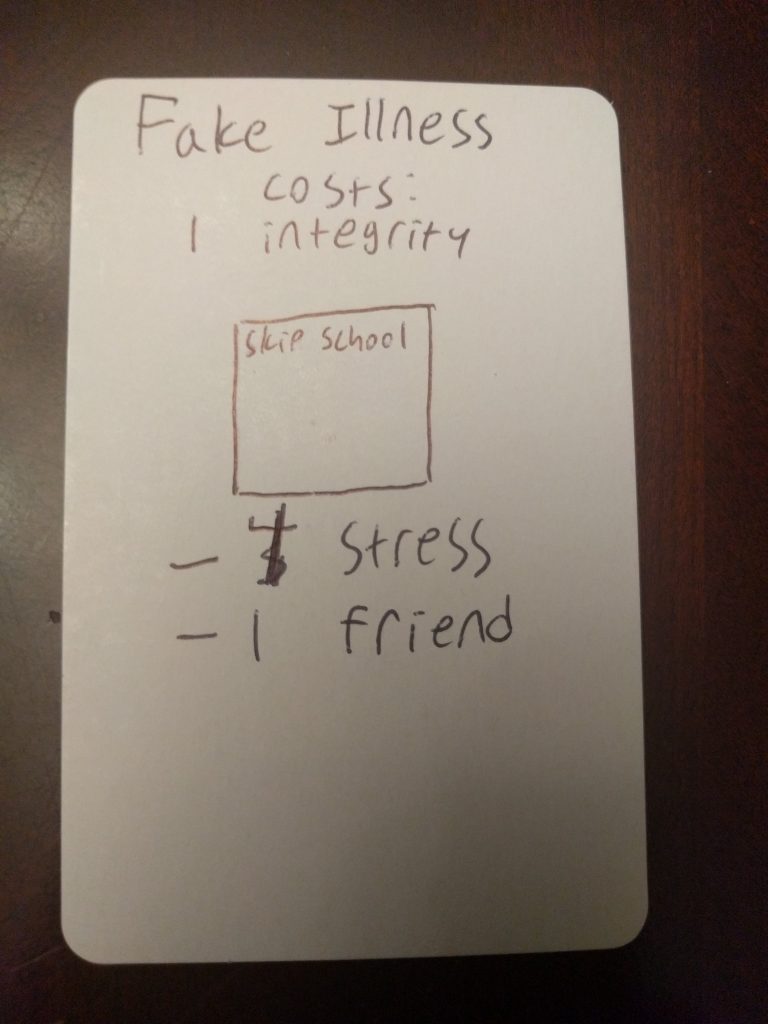 Fake Illness
costs:
1 integrity
skip school
- stress
- 1 friend